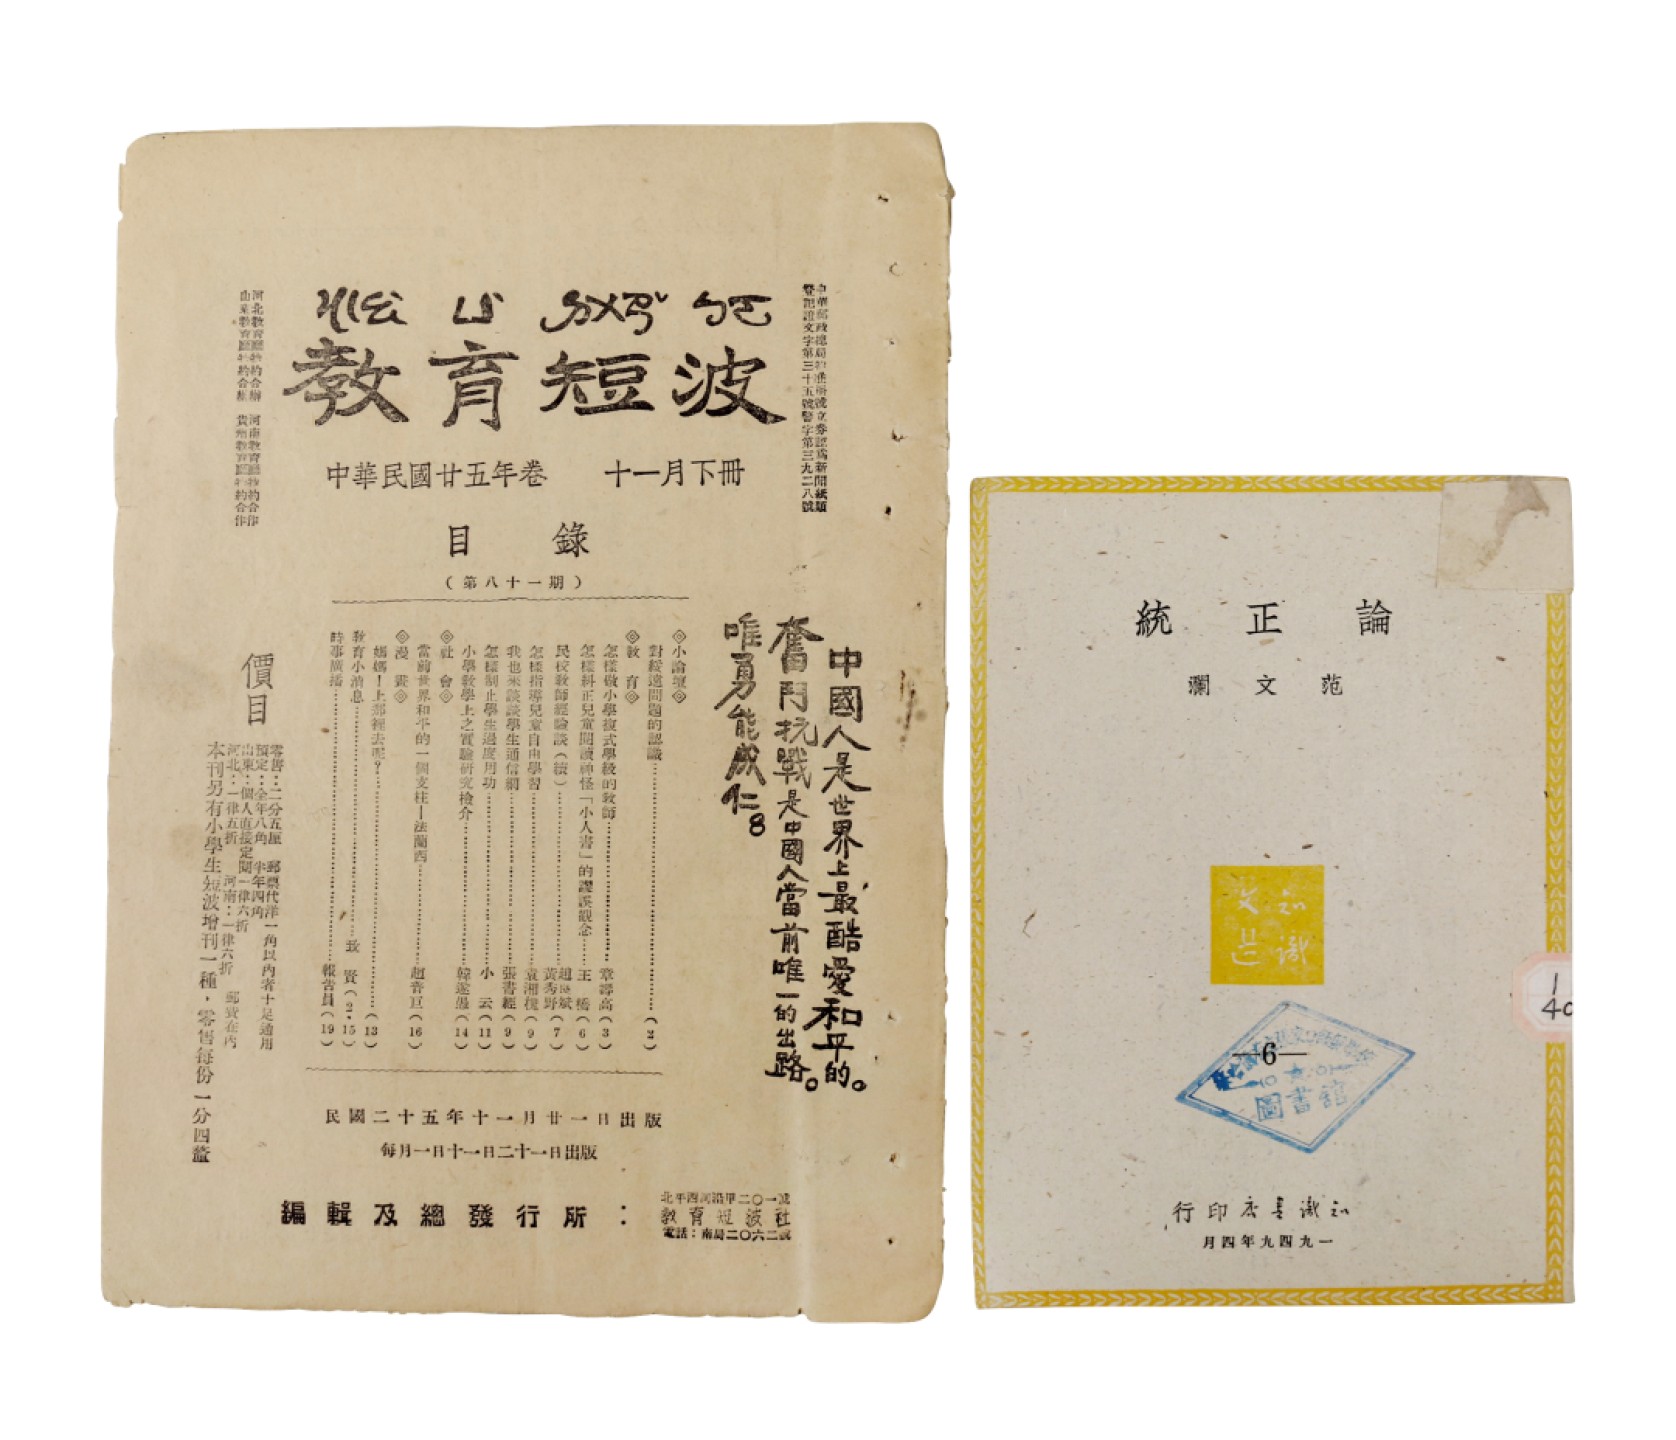 教育短波
中華民國廿五年卷 十一月下冊
目錄
(第八十一期)
中華郵政總局特准掛號立券認爲新聞紙類
登記證文字第三十五號警字第三九二八號
中國人是世界上最酷愛和平的。
奮鬥抗戰是中國人當前唯一的出路。
唯勇能成仁。
◎小論壇◎
對綏遠問題的認識(2)
◎教育◎
怎樣做小學複式學級的教師 章譯高(3)
怎樣糾正兒童閱讀神怪「小人書」的謬誤觀念 王 橋(6)
民校教師經驗談(續) 黃秀野(7)
怎樣指導兒童自由學習 袁湘槐(9)
我也來談談學生通信網 張書經(9)
怎樣制止學生過度用功 小 云(11)
小學教學上之實驗研究檢介 韓遂愚(14)
◎社會◎
當前世界和平的一個支柱—法蘭西 趙晉亘(16)
◎漫畫◎
媽媽!上那裡去呢?(13)
教育小消息(2·15)
時事廣播 報告員(19)
河北教育廳特約合辦 河南教育廳特約合作
山東教育廳特約合辦 貴州教育廳特約合作
價目
零售:二分五厘 郵票代洋一角以內者十足通用
預定:全年八角 半年四角
山東:個人直接定閱一律六折
河北:一律五折 河南:一律六折 郵費在內
本刊另有小學生短波增刊一種,零售每份一分四釐
民國二十五年十一月廿一日出版
每月一日十一日二十一日出版
編輯及總發行所:
北平西河沿甲二〇一號
教育短波社
電話:南局二〇六二號
論正統
范文瀾
知識
文叢
—6—
圖書館
1
40
知識書店印行
一九四九年四月